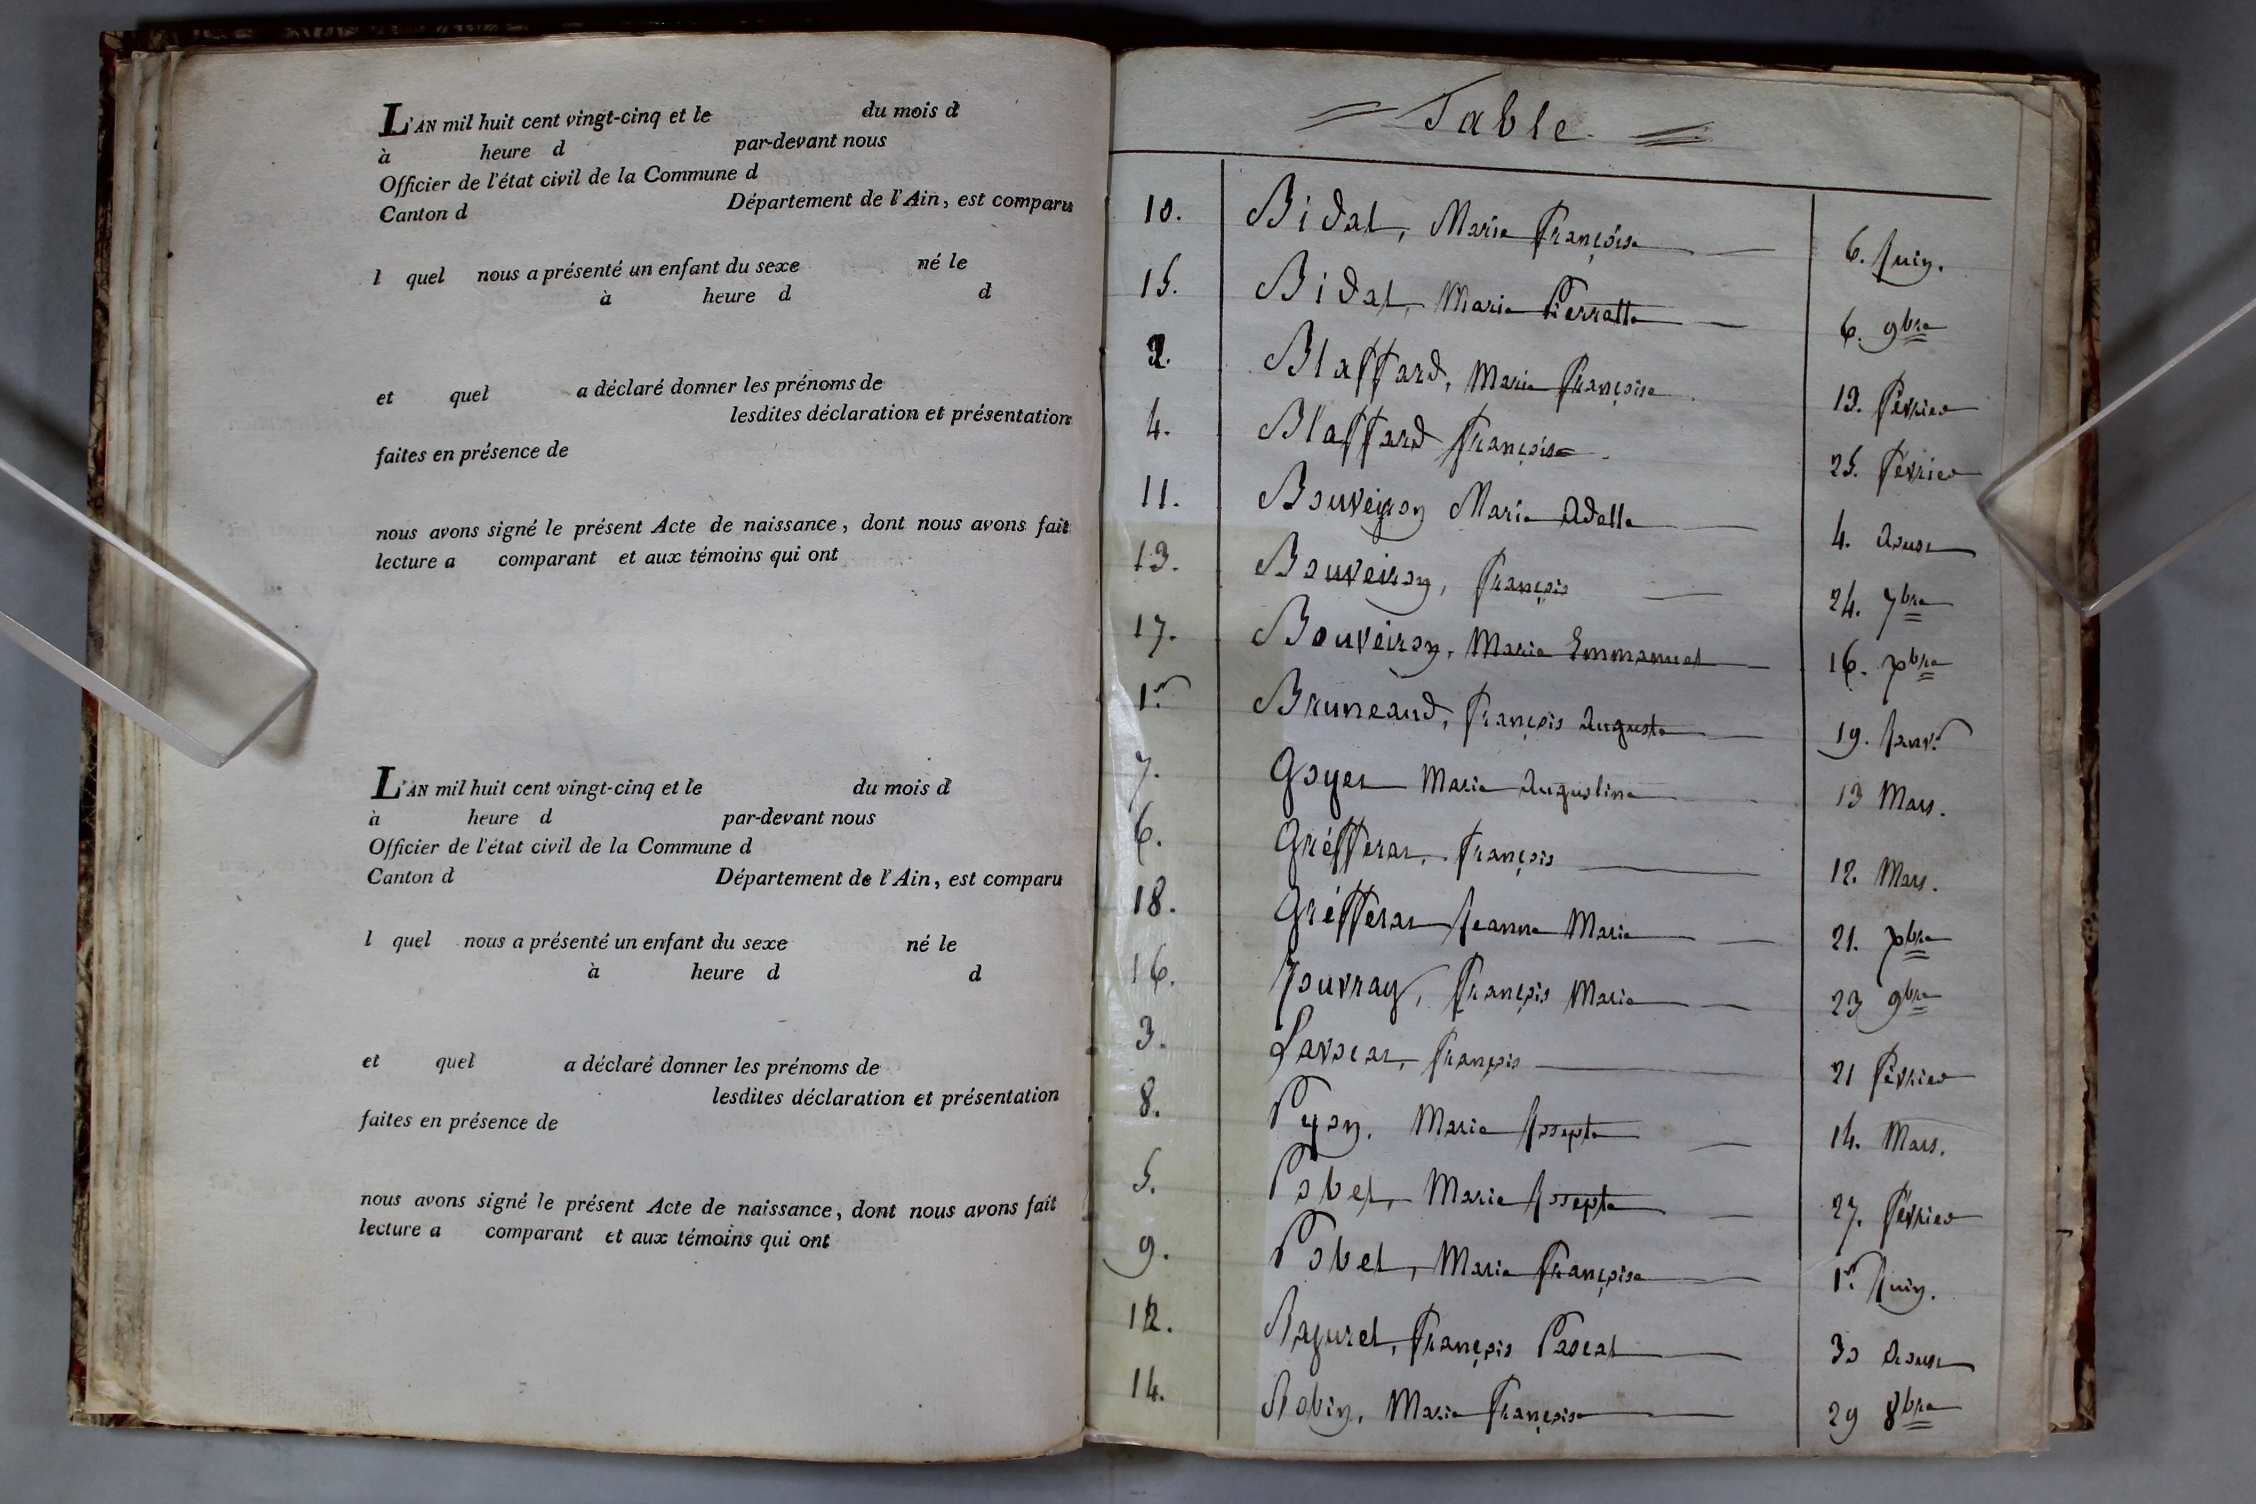 L'AN mil huit cent vingt-cinq et le du mois d
à heure d par-devant nous
Officier de l'état civil de la Commune d
Canton d Département de l'Ain, est comparu
l quel nous a présenté un enfant du sexe né le
à heure d d
et quel a déclaré donner les prénoms de
lesdites déclaration et présentation
faites en présence de
nous avons signé le présent Acte de naissance, dont nous avons fait
lecture a comparant et aux témoins qui ont
L'AN mil huit cent vingt-cinq et le du mois d
à heure d par-devant nous
Officier de l'état civil de la Commune d
Canton d Département de l'Ain, est comparu
l quel nous a présenté un enfant du sexe né le
à heure d d
et quel a déclaré donner les prénoms de
lesdites déclaration et présentation
faites en présence de
nous avons signé le présent Acte de naissance, dont nous avons fait
lecture a comparant et aux témoins qui ont
= Table. =
10. Bidal, Marie Françoise 6. Juin.
15. Bidal, Marie Pierrette 6. 9bre
2. Blaffard, Marie Françoise 13. Février
4. Blaffard Françoise 25. Février
11. Bouveyron Marie Adelle 4. Aoust
13. Bouveiron, François 24. 7bre
17. Bouveiron, Marie Emmanuel 16. Xbre
1er Bruneaud, François Auguste 19. Janvr
7. Goyet Marie Augustine 13 Mars.
6. Grefferat, François 12. Mars.
18. Grefferat Jeanne Marie 21. Xbre
16. Jouvray, François Marie 23 9bre
3. Lavocat, François 21 Février
8. Pyon, Marie Josepte 14. Mars.
5. Pobel, Marie Josepte 27. Février
9. Pobel, Marie Françoise 1er Juin.
12. Rajurel, François Pascal 30 Aoust
14. Robin, Marie Françoise 29 8bre